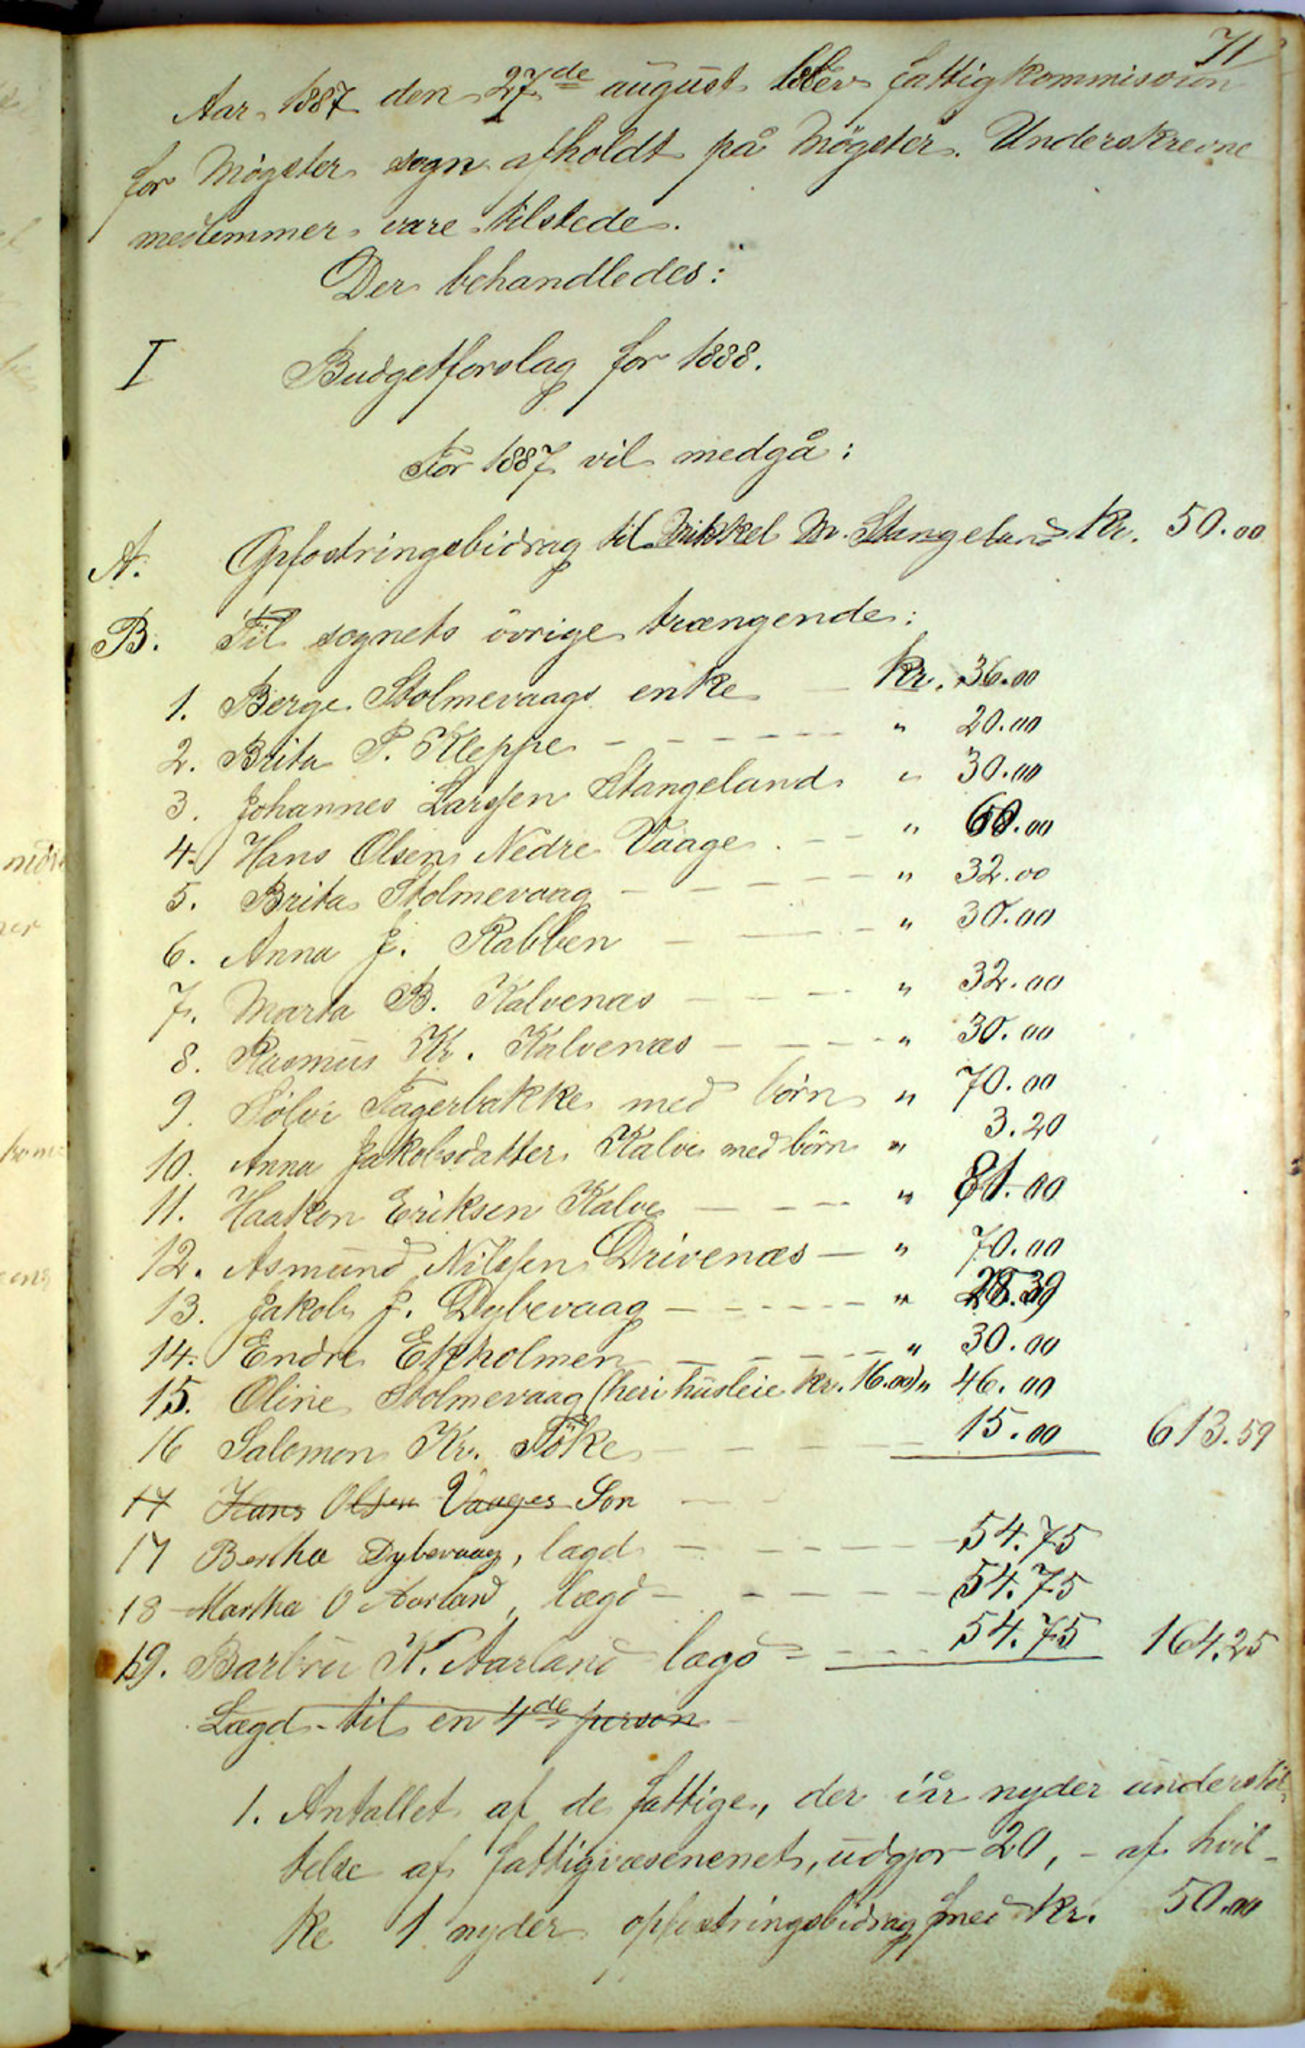 71
Aar 1887 den 27de august blev fattigkommission
for Møgster sogn afholdt på Møgster. Underskrevne
medlemmer vare tilstede.
Der behandledes:
I Budgetforslag for 1888.
For 1887 vil medgå:
A. Opfostringsbidrag til Mikkel M. Stangeland kr. 50.00
B. Til sognets övrige trængende:
1. Berge Stolmevaags enke — kr. 36.00
2. Brita P. Kleppe - - - - - " 20.00
3. Johannes Larsen Stangeland " 30.00
4. Hans Olsen Nedre Vaage. - - " 60.00
5. Brita Stolmevaag - - - - - " 32.00
6. Anna J. Rabben - - - - " 30.00
7. Marta B. Kalvenæs - - - - " 32.00
8. Rasmus Kr. Kalvenæs - - - - " 30.00
9. Sölvi Fagerbakke med börn " 70.00
10. Anna Jakobsdatter Kalve med börn " 3.20
11. Haakon Eriksen Kalve - - - - " 81.00
12. Asmund Nilssen Drivenæs — " 70.00
13. Jakob J. Dybevaag - - - - - " 28.39
14. Endre Ekholmen - - - - - " 30.00
15. Oline Stolmevaag (heri husleie kr. 16.00) " 46.00
16 Salomon Kr. Föke - - - - 15.00 613.59
17 Hans Olsen Vaages Son - -
17 Bertha Dybevaag, lægd - - - - - 54.75
18 Martha O Aarland, lægd - - - - - 54.75
19. Barbru K. Aarland lægd - - - - 54.75 164.25
Lægd til en 4de person
1. Antallet af de fattige, der iår nyder understöt-
telse af fattigvæsenenet, udgjør 20, - af hvil-
ke 1 nyder opfostringsbidrag med kr. 50.00